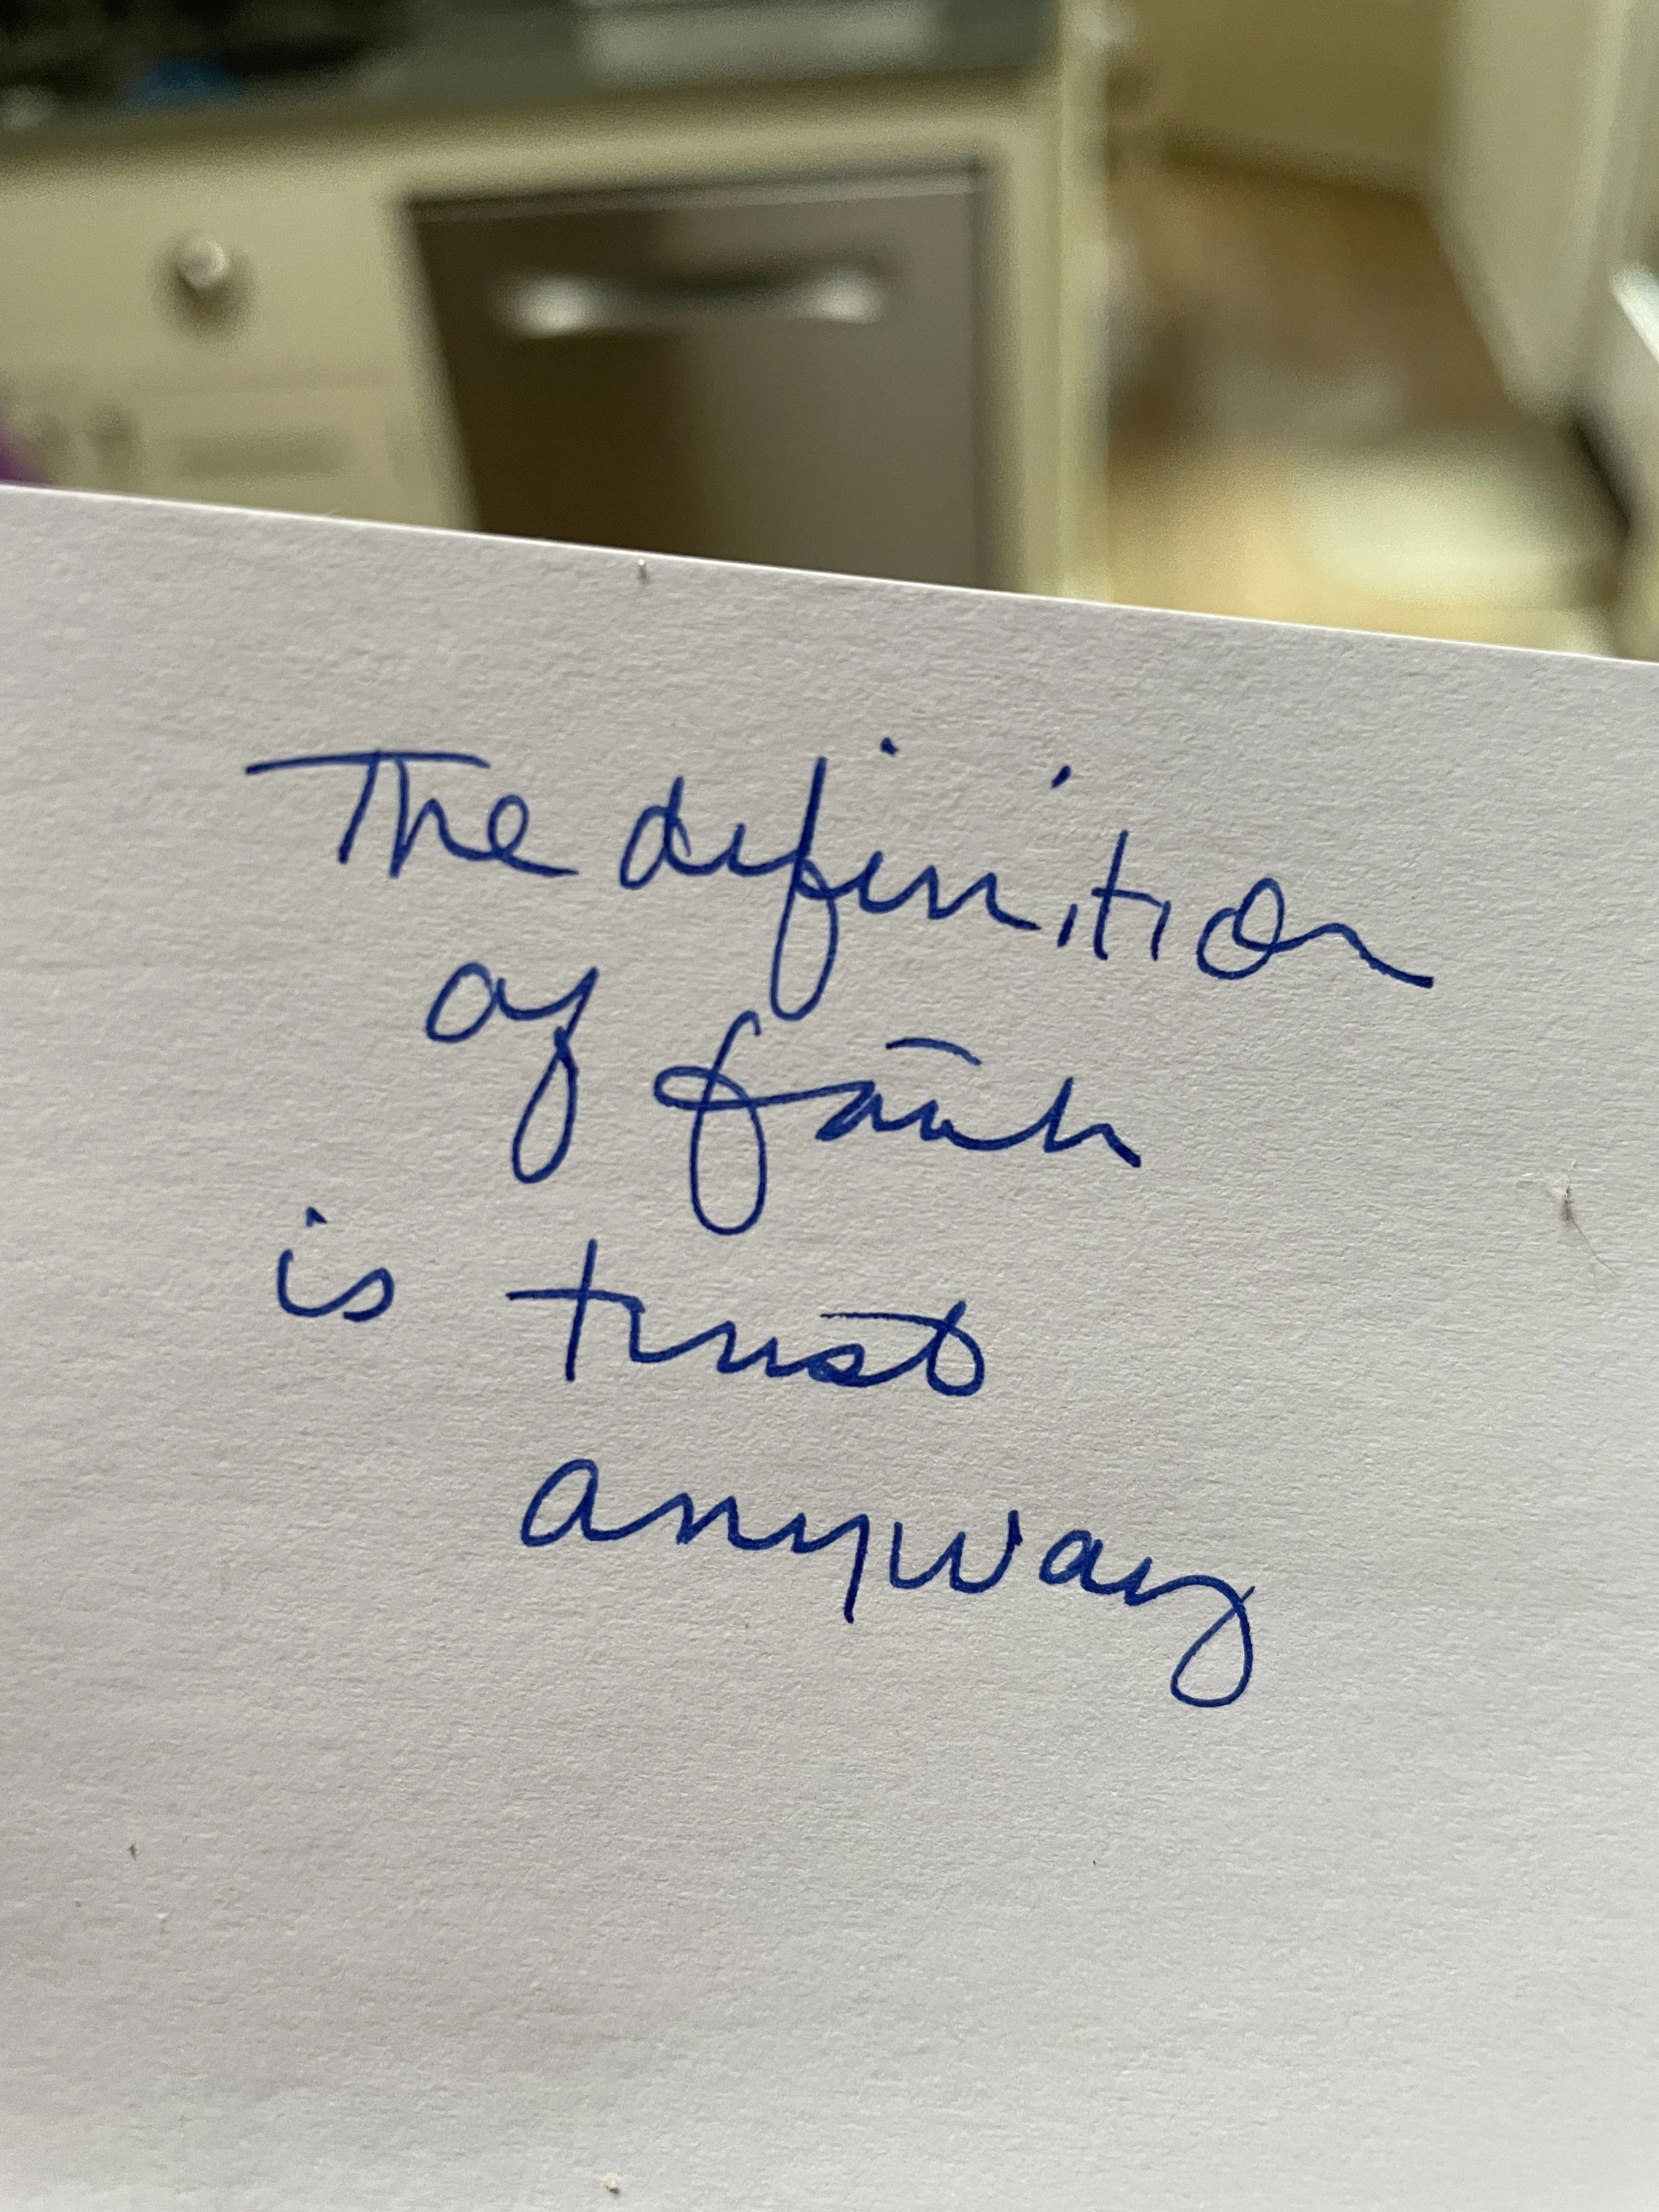 The definition
of faith
is trust
anyway